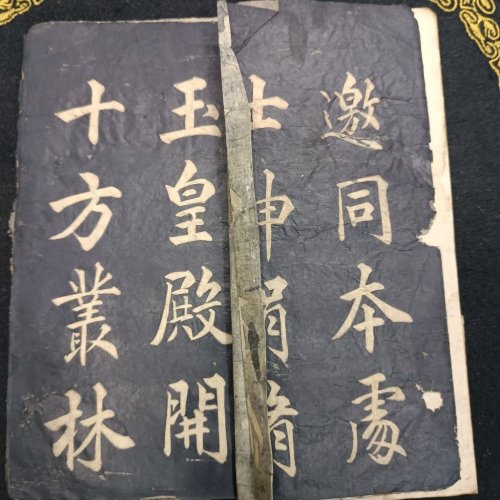 邀同本處
士紳捐脩
玉皇殿開
十方叢林